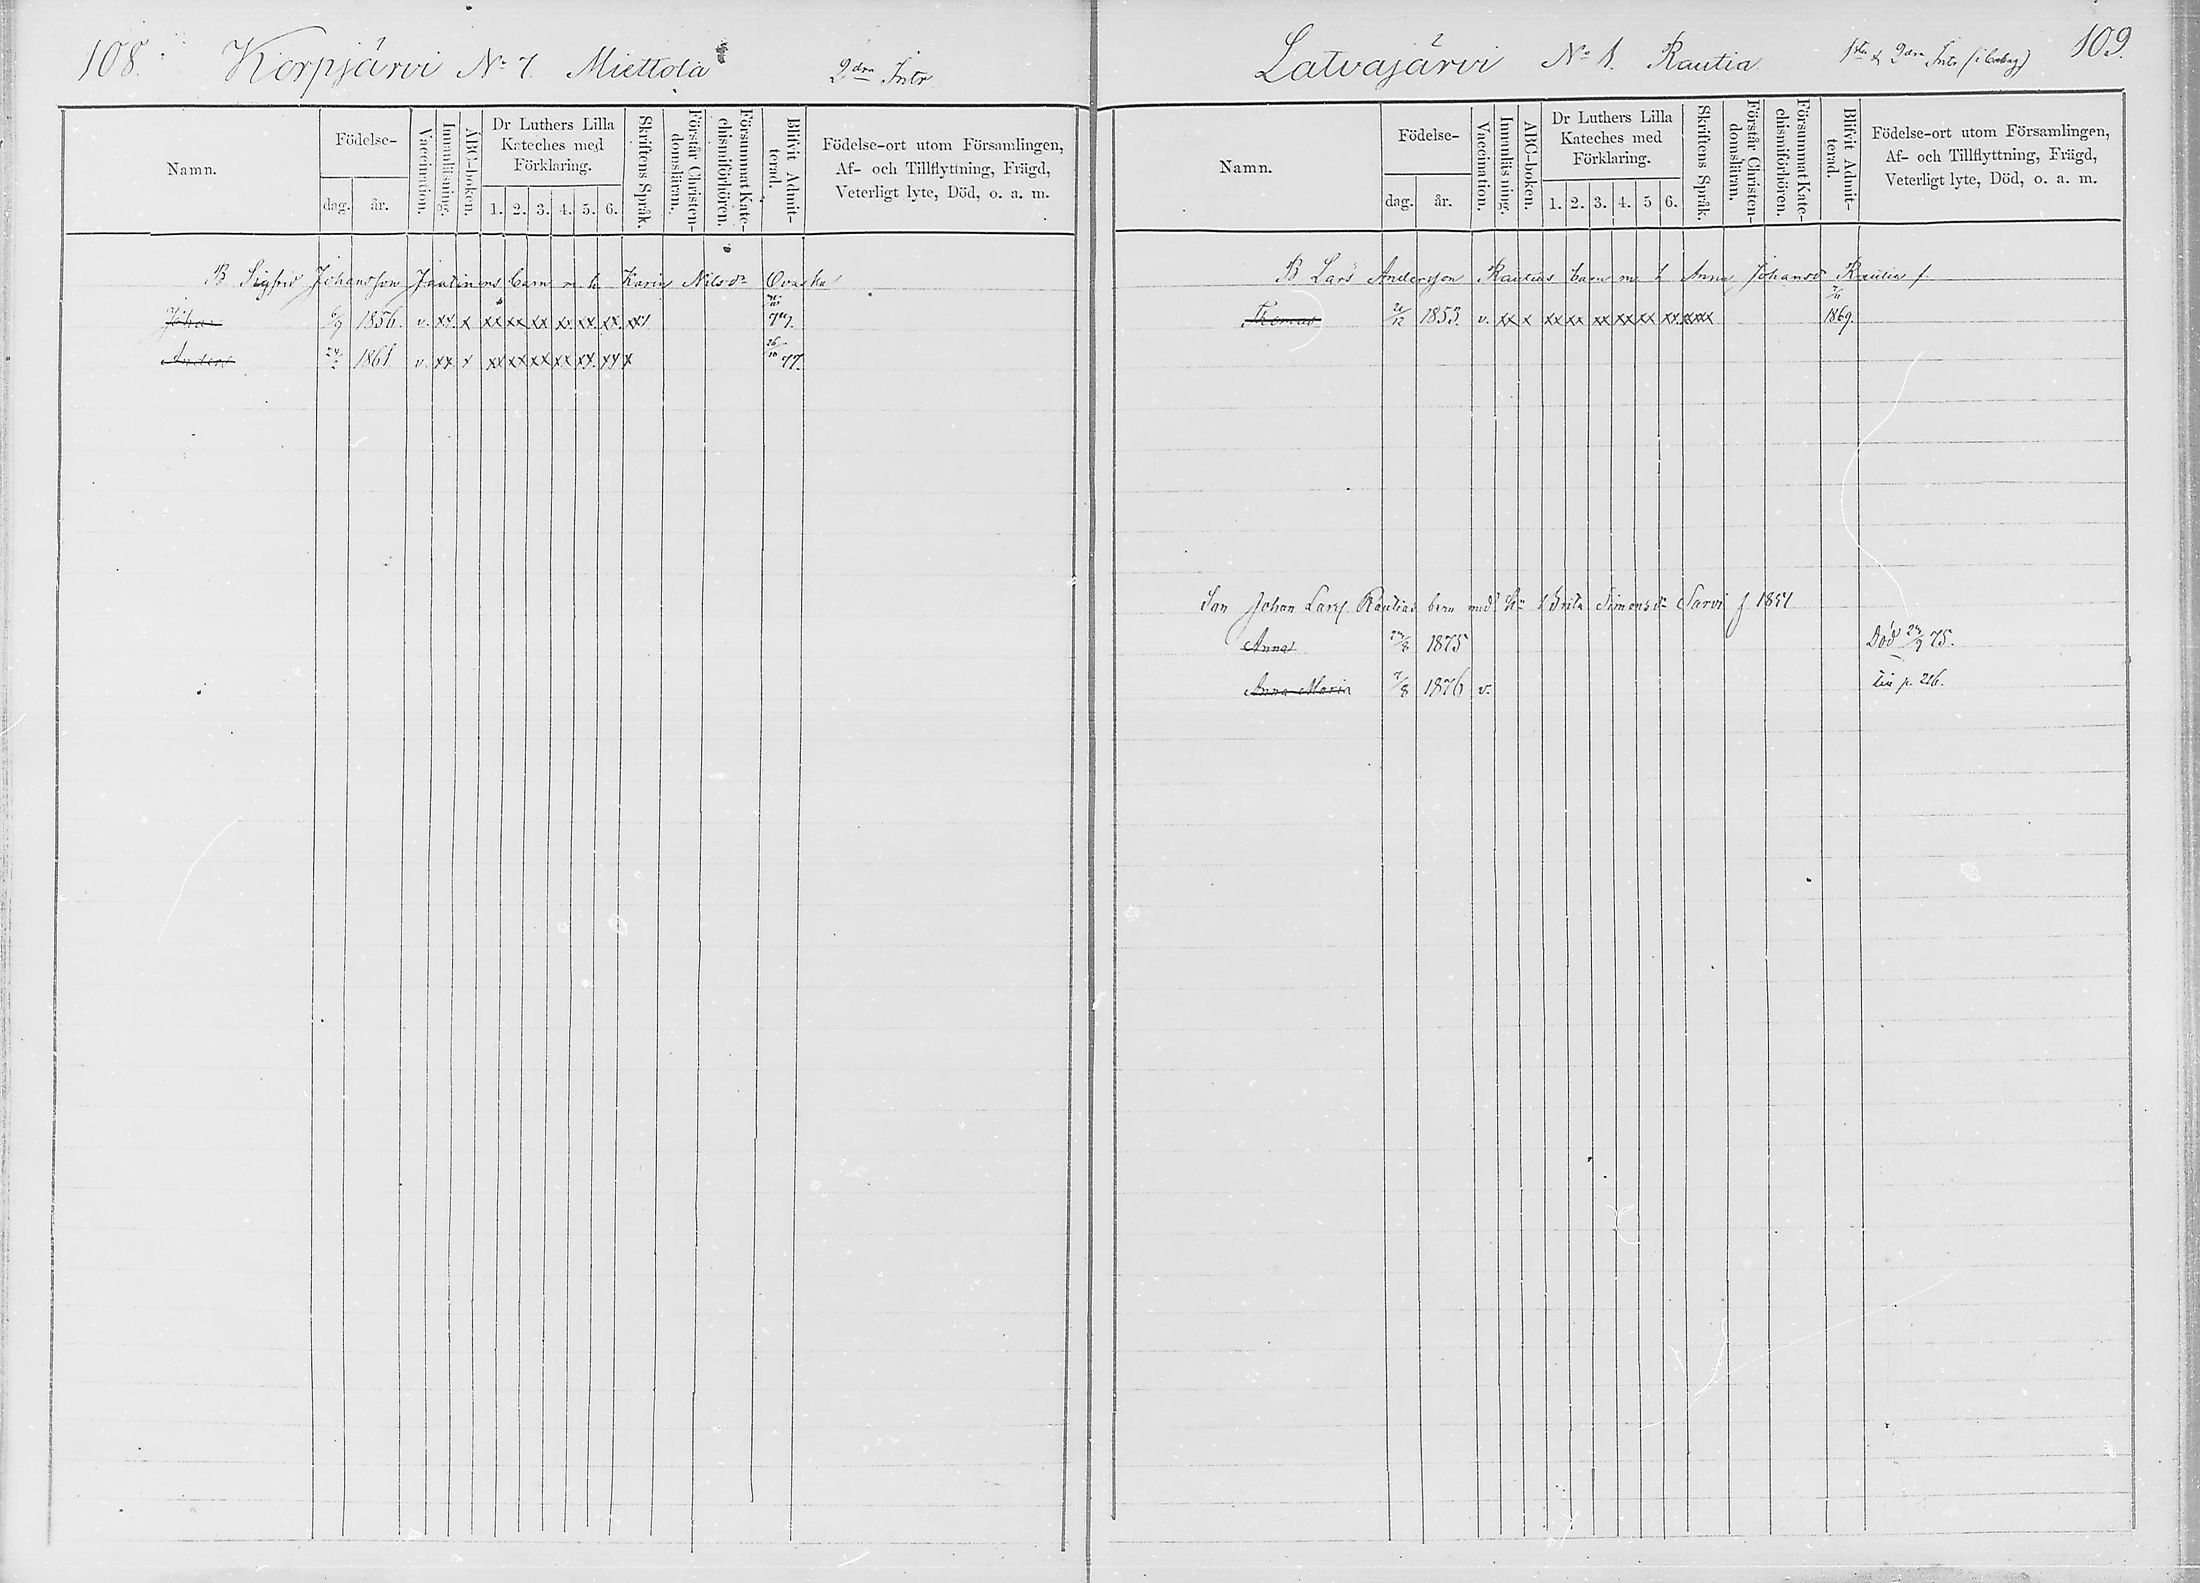 108. Korpjärvi No 7. Miettola 2dra Intr
Namn. Födelse- dag. år. Vaccination. Innanläsning. ABC-boken. Dr Luthers Lilla Kateches med Förklaring. 1. 2. 3. 4. 5. 6. Skriftens Språk. Förstår Christen-domsläran. Försummat Kate-chismiförhören. Blifvit Admit-terad. Födelse-ort utom Församlingen, Af- och Tillflyttning, Frägd, Veterligt lyte, Död, o. a. m.
B Sigfrid Johansson Jaatinens barn m h Karin Nilsdr Ovaska
Johan 6/9 1856. v. xx x xx xx xx xx xx xx. xx
Anders 1861 v. xx x xx xx xx xx xx. xx x 26/10 77.
Latvajärvi No 1. Rautia 1sta & 2dra Intr 109.
Namn. Födelse- dag. år. Vaccination. Innanläsning. ABC-boken. Dr Luthers Lilla Kateches med Förklaring. 1. 2. 3. 4. 5 6. Skriftens Språk. Förstår Christen-domsläran. Försummat Kate-chismiförhören. Blifvit Admit-terad. Födelse-ort utom Församlingen, Af- och Tillflyttning, Frägd, Veterligt lyte, Död, o. a. m.
B Lars Andersson Rautias barn m h Anna Johansdr Rautia f
Thomas 21/12 1853. v. xx x xx xx xx xx xx xx. xxx 7/11 1869.
Son Johan Larss. Rautias barn med Brita Simonsdr Sarvi f 1851
Anna 1875 Död 75.
Anna Maria 7/8 1876 v. p. 216.